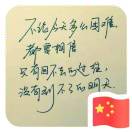 不论今天多么困难，
都要相信
只有回不去的过往，
没有到不了的明天